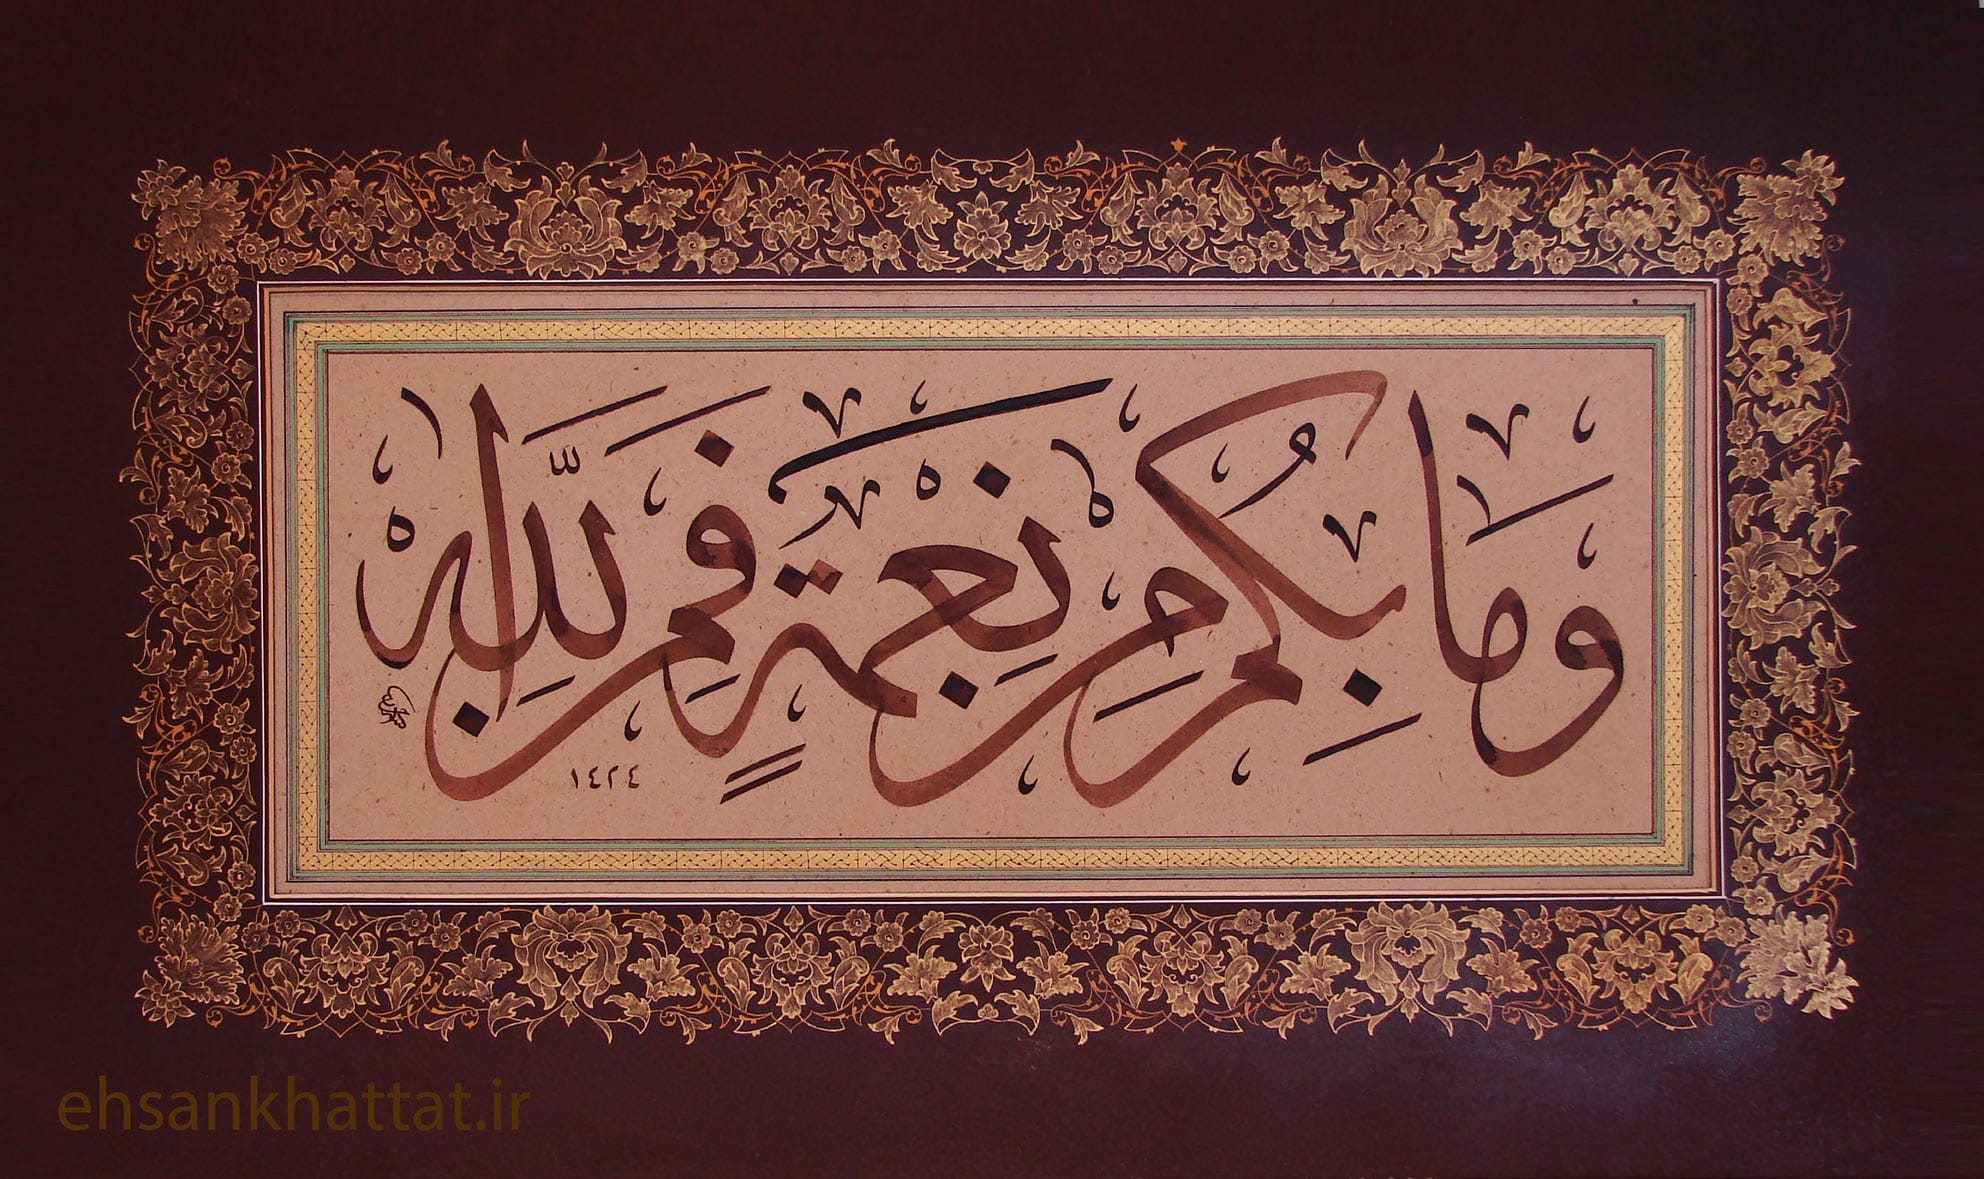 وَمَا بِكُمْ مِنْ نِعْمَةٍ فَمِنَ اللَّهِ
١٤٢٤
ehsankhattat.ir